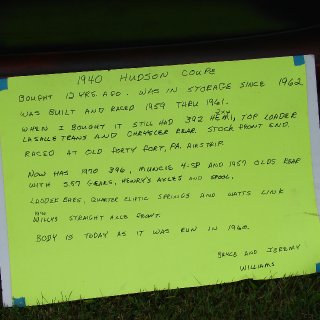 1940 HUDSON COUPE
BOUGHT 12 YRS. AGO. WAS IN STORAGE SINCE 1962
WAS BUILT AND RACED 1959 THRU 1961.
WHEN I BOUGHT IT STILL HAD 392 HEMI, TOP LOADER
LASALLE TRANS AND CHRYSLER REAR. STOCK FRONT END.
RACED AT OLD FORTY FORT, PA. AIRSTRIP.
NOW HAS 1970 396, MUNCIE 4-SP AND 1957 OLDS REAR
WITH 5.57 GEARS, HENRY'S AXLES AND SPOOL.
LADDER BARS, QUARTER ELIPTIC SPRINGS AND WATTS LINK
1940
WILLYS STRAIGHT AXLE FRONT.
BODY IS TODAY AS IT WAS RUN IN 1960.
BRUCE AND JEREMY
WILLIAMS